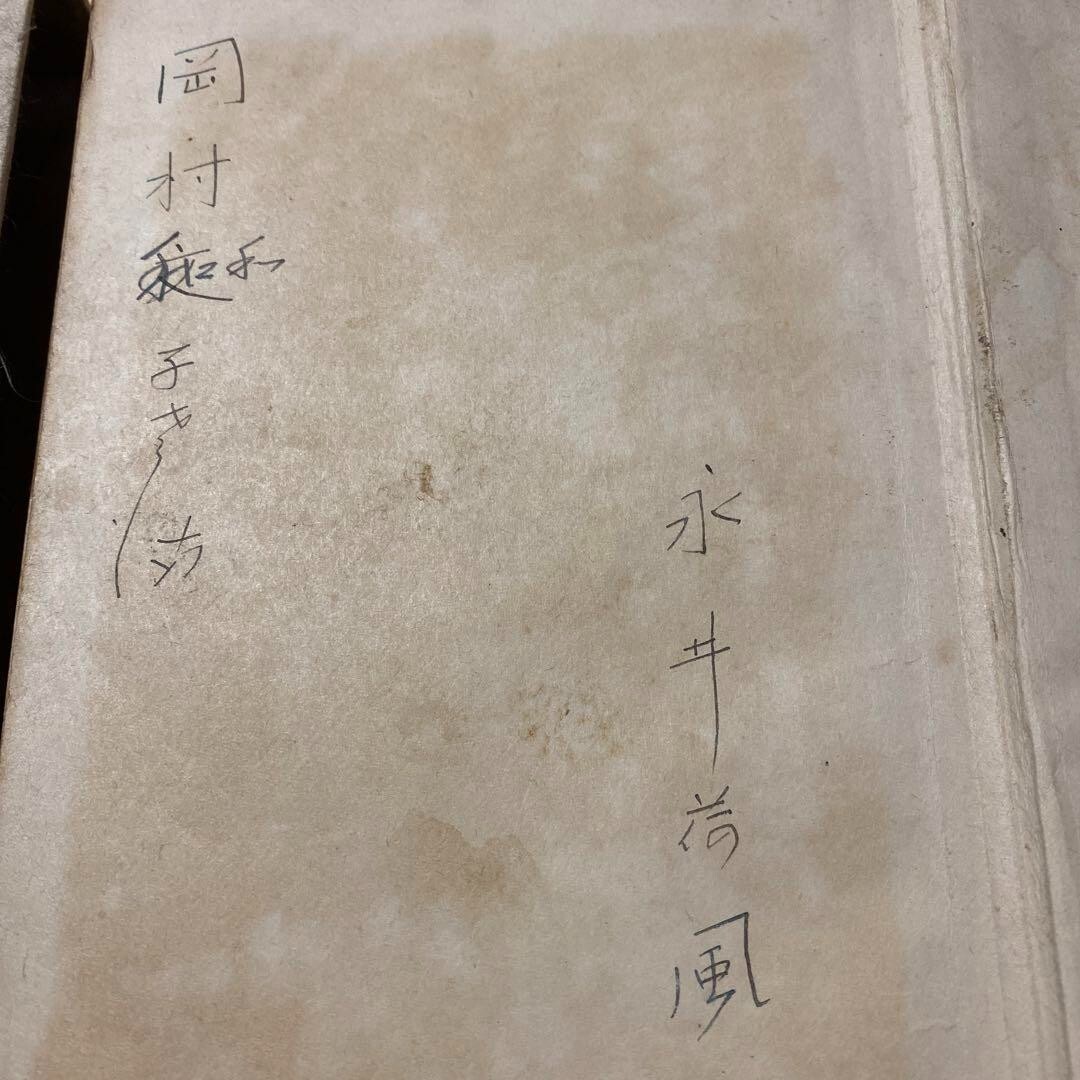 永井荷風
岡村和子